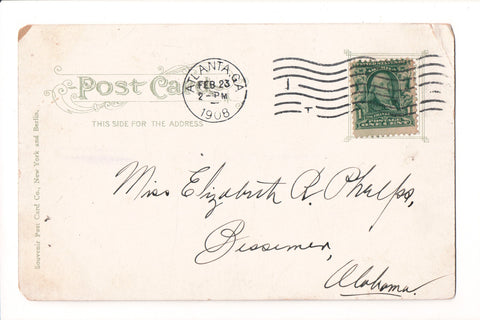 Post Card
THIS SIDE FOR THE ADDRESS
ATLANTA, GA.
FEB 23
2-PM
1908
1
T
Miss Elizabeth R. Phelps,
Bessemer,
Alabama.
Souvenir Post Card Co., New York and Berlin.